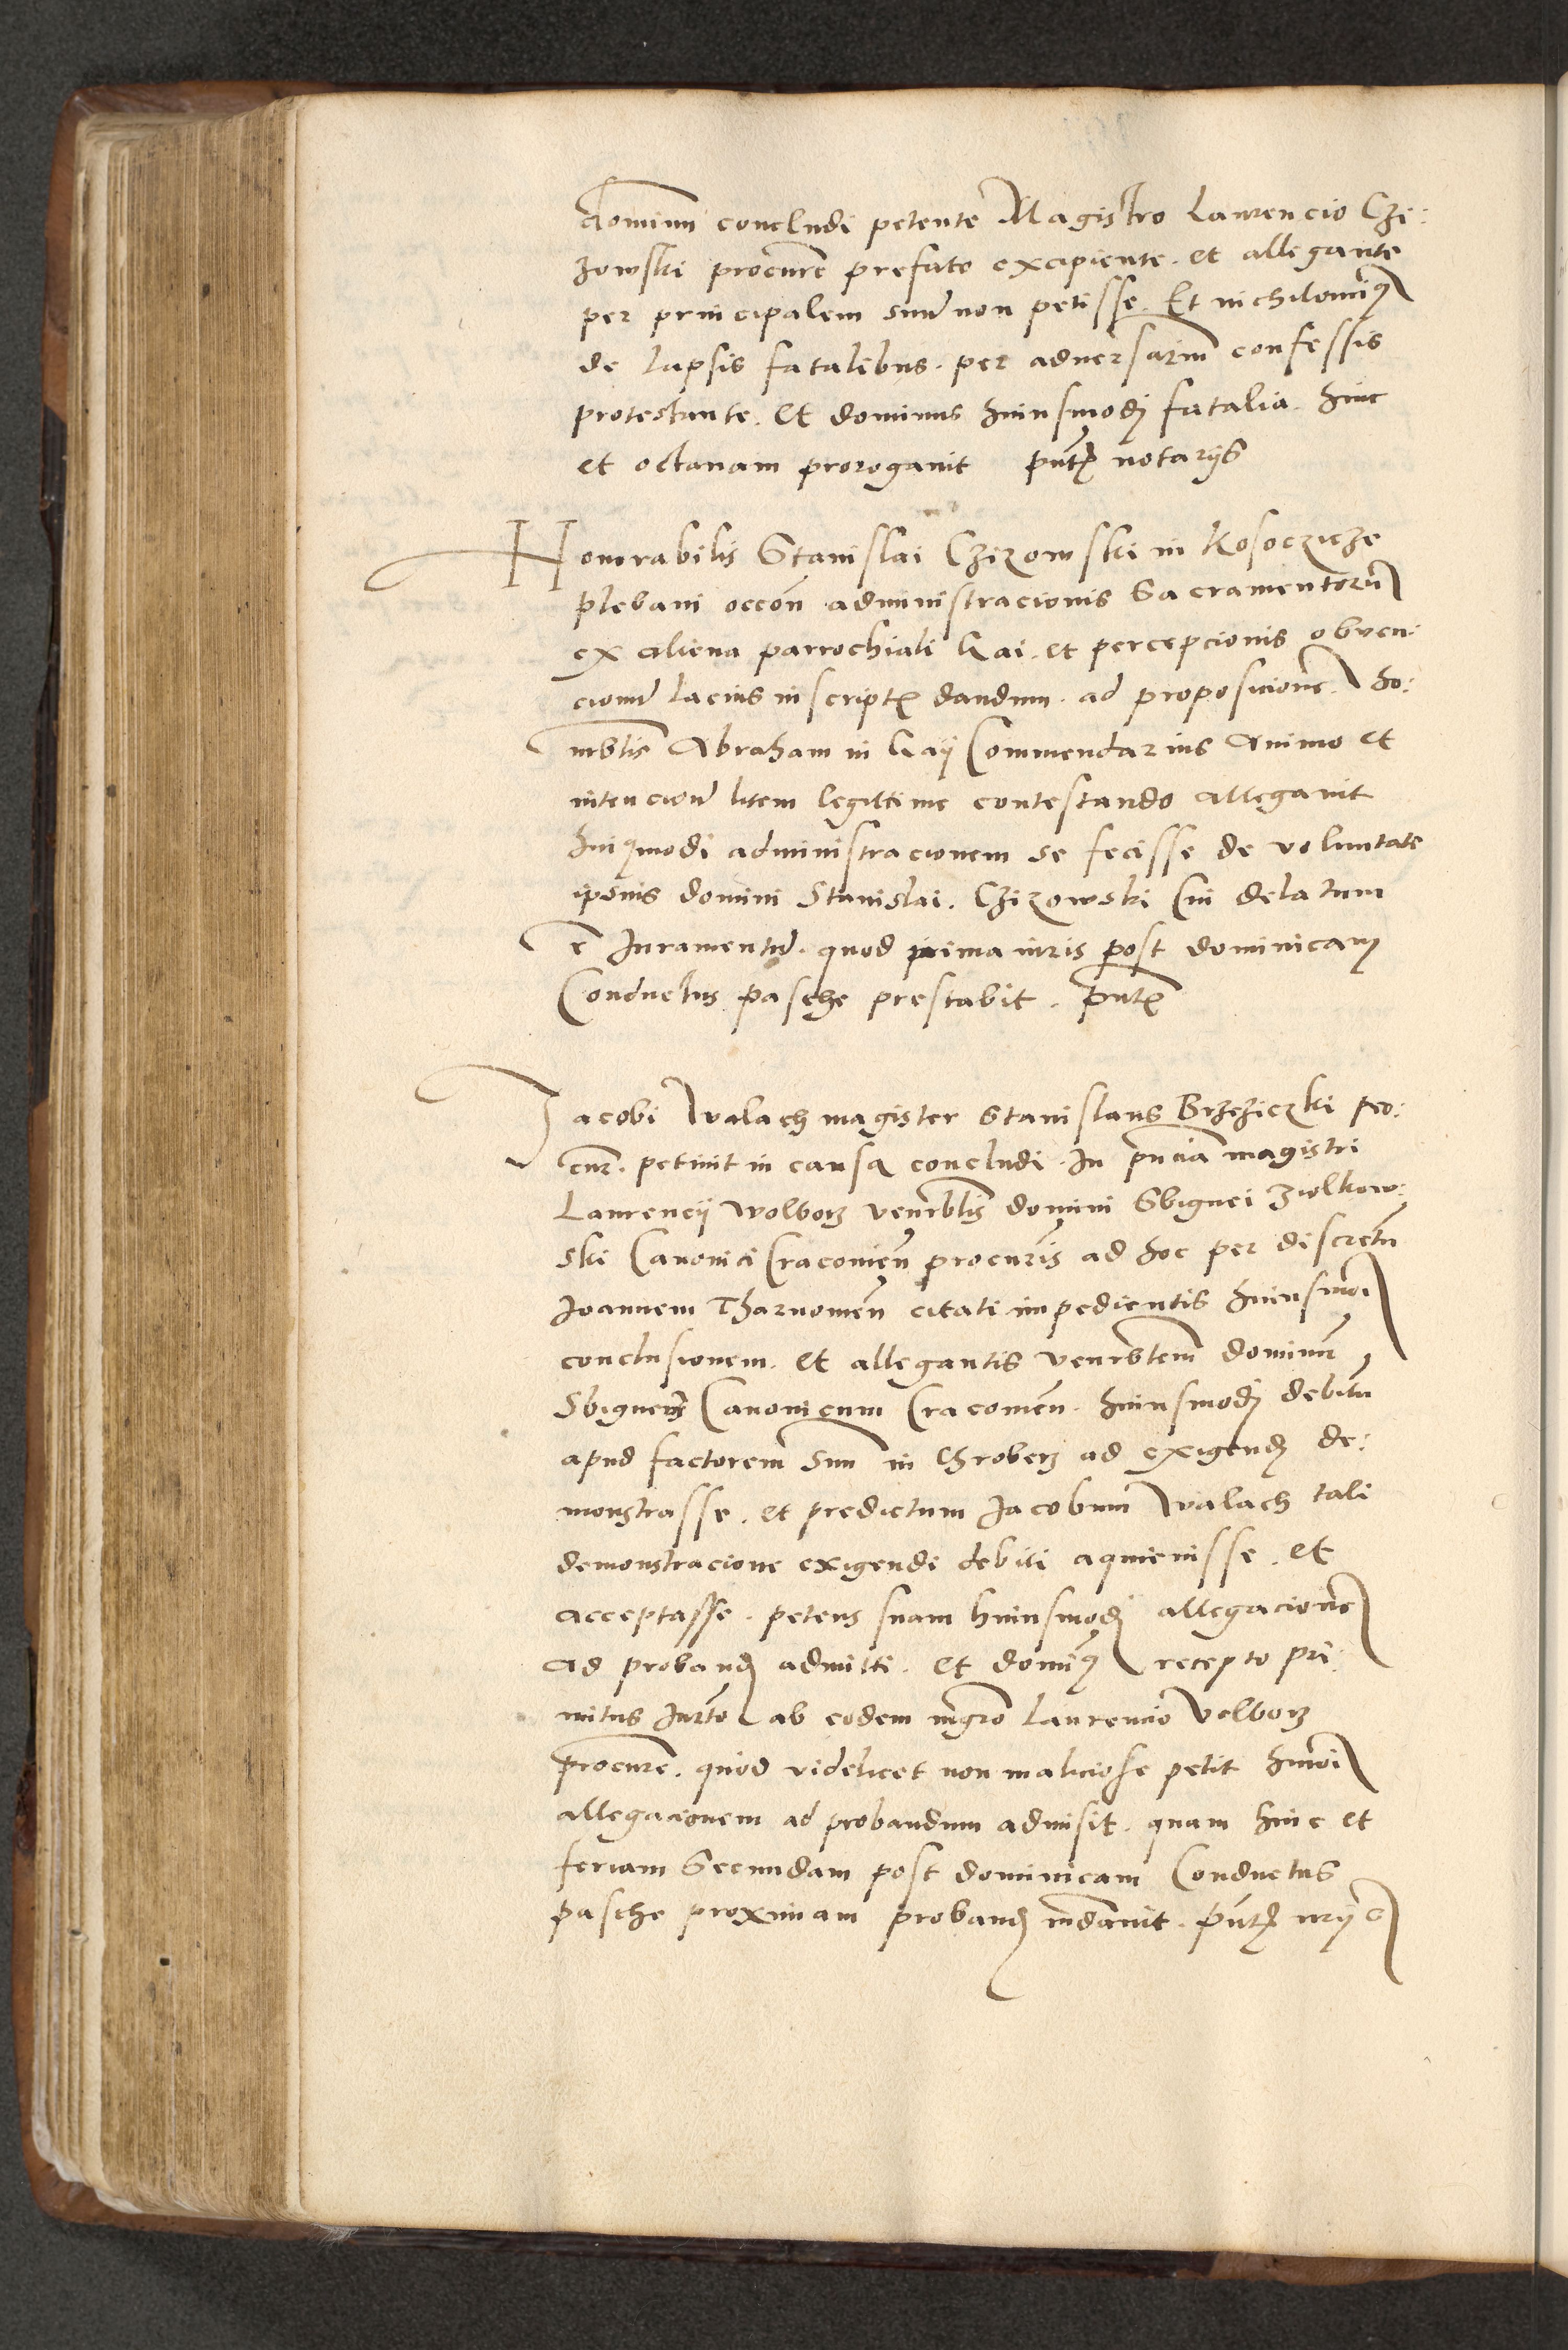 dominum concludi petente Magistro Laurencio Czi:
zowski procure prefato excipiente. et allegante
per principalem suum non petisse. Et nichilominus
de lapsis fatalibus. per adversarium confessis
protestante. Et dominus huiusmodi fatalia. hinc
et octavam prorogavit pntibus notariis
Honorabilis Stanislai Czizowski in Kosocziche
plebani occon administracionis Sacramentorum
ex aliena parrochiali Gai. et percepcionis obven:
cionum lacius in scriptis dandum. ad proposicionem. ho:
nrblis Abraham in Gaii Commendarius Animo et
intencione litem legittime contestando allegavit
huiusmodi administracionem se fecisse de voluntate
ipsius domini Stanislai. Czizowski Cui delatum
e Iuramentum. quod prima iuris post dominicam
Conductus pasche prestabit. pntibus
Jacobi Walach magister Stanislaus Brzeziczki pro:
cur. petiuit in causa concludi. In pncia magistri
Laurencii Wolborz venrblis domini Sbignei Ziolkow:
ski Canonici Cracouien procuris ad hoc per discretum
Ioannem Tharnowien citati impedientis huiusmoi
conclusionem. et allegantis venrblem dominum
Sbigneum Canonicum Cracouien. huiusmodi debitum
apud factorem suum in Chroberz ad exigendum de:
monstrasse. et predictum Jacobum Walach tali
demonstracione exigendi debiti aquievisse. et
acceptasse. petens suam huiusmodi allegacionem
ad probandum admitti. et dominus recepto pri:
mitus Iurto ab eodem mgro Laurencio Volborz
procure. quod videlicet non maliciose petit hmoi
allegacionem ad probandum admisit. quam hinc et
feriam Secundam post dominicam Conductus
pasche proximam probandum mdauit. pntibus nriis